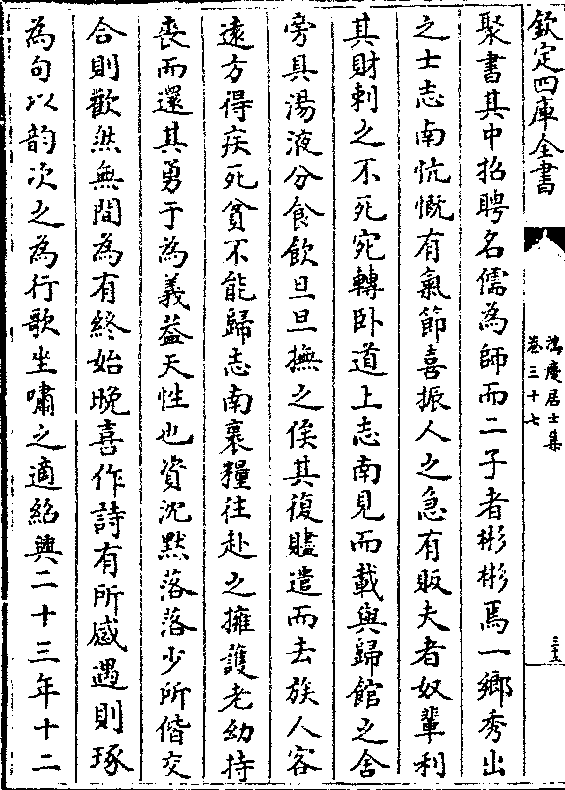 欽定四庫全書
鴻慶居士集
卷三十七
三十五
聚書其中招聘名儒為師而二子者彬彬焉一鄉秀出
之士志南忼慨有氣節喜振人之急有販夫者奴輩利
其財刺之不死宛轉卧道上志南見而載與歸館之舍
旁具湯液分食飲旦旦撫之俟其復贐遣而去族人客
逺方得疾死貧不能歸志南裹糧往赴之擁護老幼持
喪而還其勇于為義葢天性也資沉黙落落少所偕交
合則歡然無間為有終始晚喜作詩有所感遇則琢
為句以韵次之為行歌坐嘯之適紹興二十三年十二